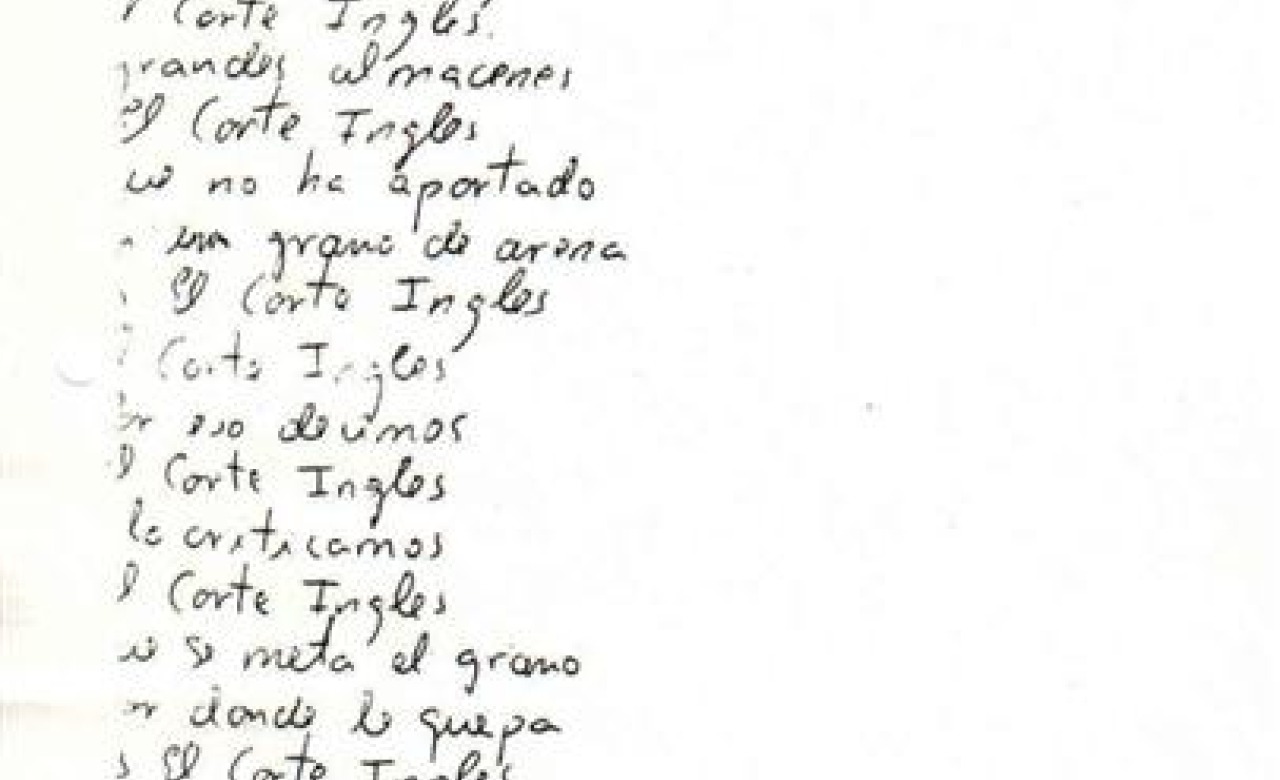 Corte Ingles.
grandes almacenes
El Corte Ingles
ue no ha aportado
un grano de arena
El Corte Ingles
Corte Ingles
or eso decimos
l Corte Ingles
lo criticamos
l Corte Ingles
ue se meta el grano
or donde le quepa
s El Corte Ingles